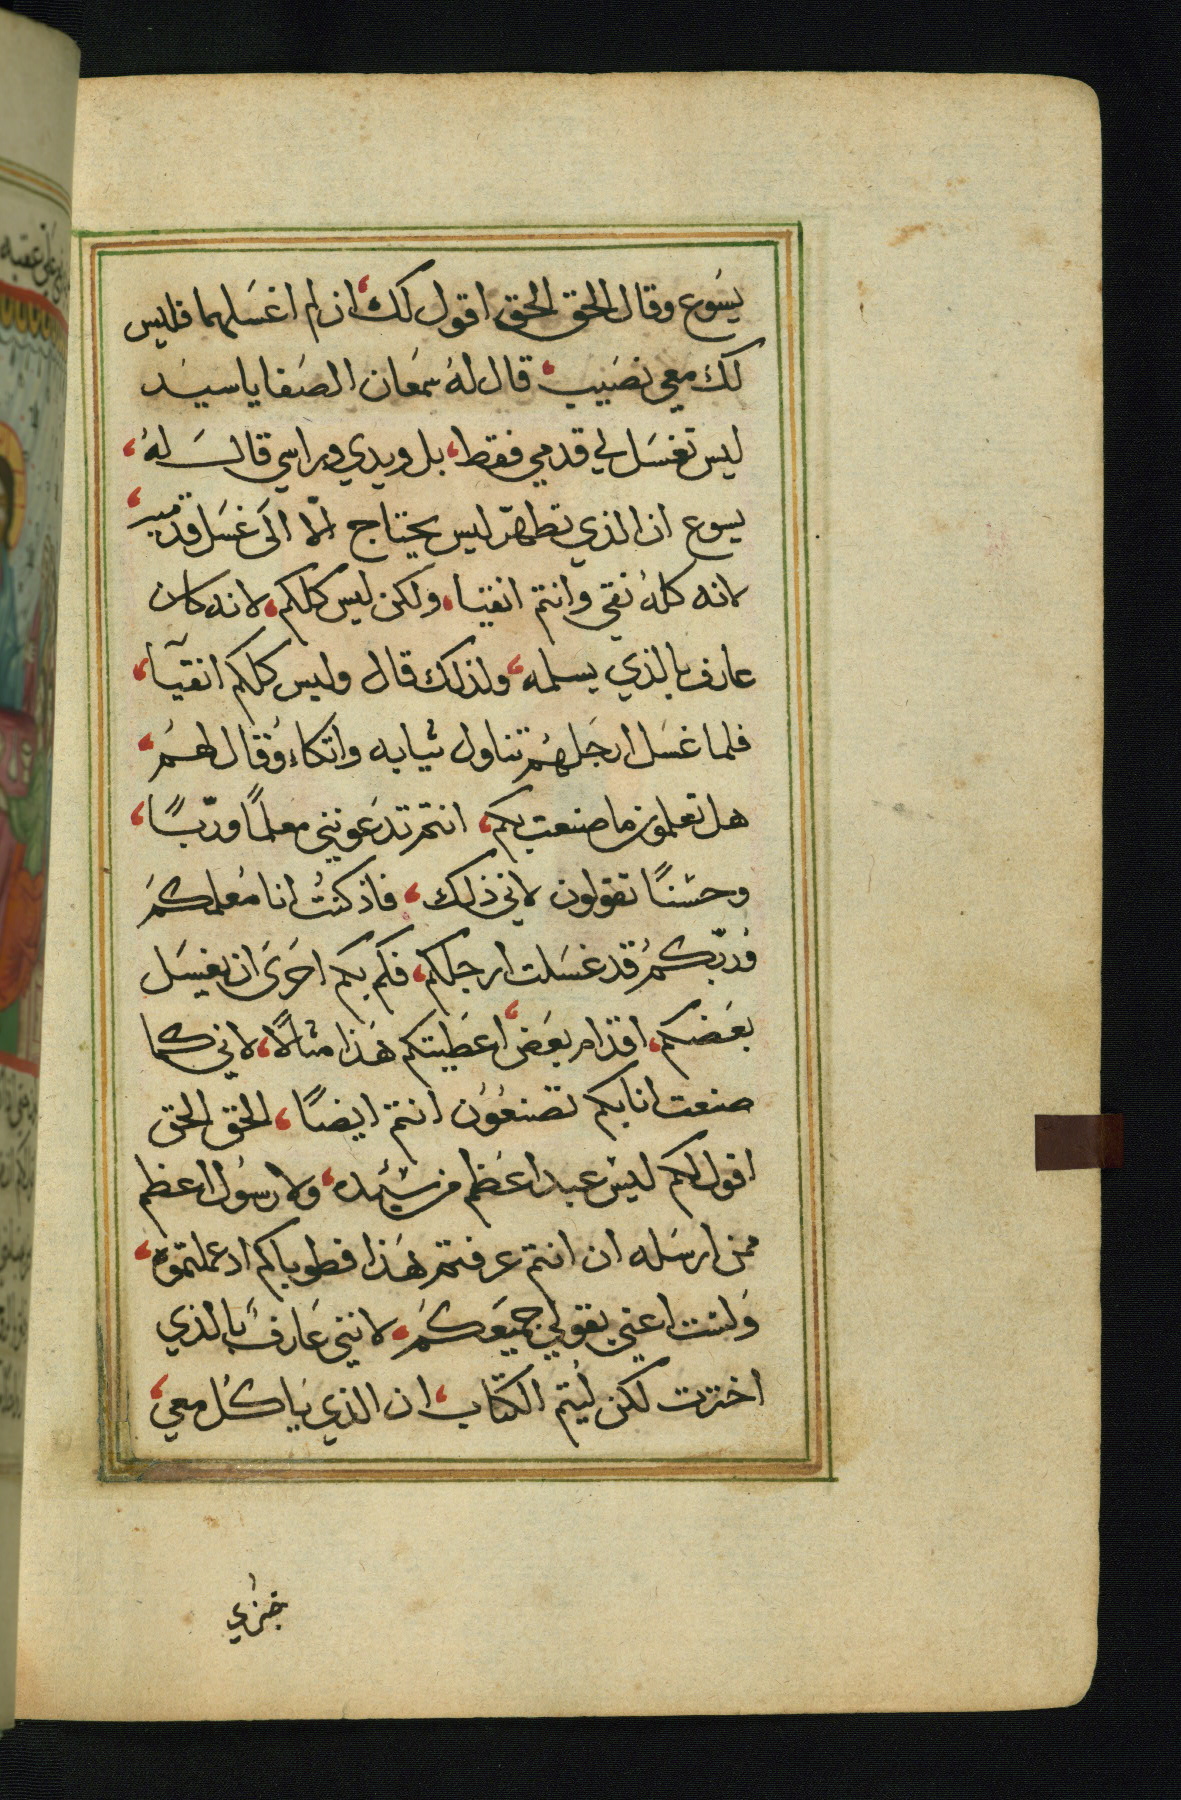 يسوع وقال الحق الحق اقول لك ان لم اغسلهما فليس
لك معي نصيب قال له سمعان الصفا يا سيد
ليس تغسل لي قدمي فقط، بل ويدي وراسي قال له،
يسوع ان الذي تطهّر ليس يحتاج الّا الى غسل قدميه،
لانه كلهُ نقي وانتم انقيا، ولكن ليس كلكم، لانه كان
عارف بالذي يسلمه، ولذلك قال وليس كلكم انقيآ،
فلما غسل ارجلهُم تناول ثيابه واتكاء وقال لهم،
هل تعلمون ما صنعت بكم، انتم تدعونني معلمًا وربًّا،
وحسنًا تقولون لاني ذلك، فاذ كنتُ انا مُعلمكم
وُربّكمُ قد غسلت ارجلكم، فكم بكم احرى ان يغسل
بعضكم، اقدام بعض، اعطيتكم هذا مثالًا، لاني كما
صنعت انا بكم تصنعُوُن انتم ايضًا، الحق الحق
اقول لكم ليس عبد اعظم من سيده، ولا رسول اعظم
ممن ارسله ان انتم عرفتم هذا فطوباكم اذ عملتموه،
ولست اعني بقولي جميعكم، لانني عارف بالذي
اخترت لكن ليُتم الكتاب، ان الذي ياكل معي،
خبزي